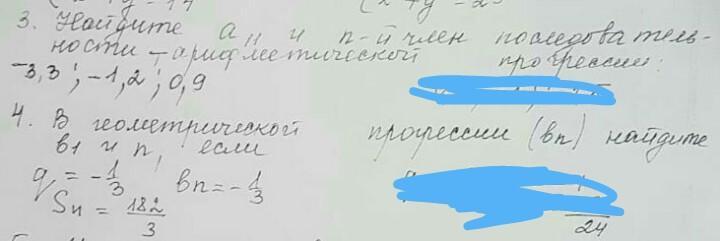 3. Найдите a₁₁ и n-й член последователь-
ности – арифметической прогрессии:
-3,3; -1,2; 0,9
4. В геометрической прогрессии (bn) найдите
b1 и n, если
q = -1/3 bn = -1/3
Sn = 182/3
24